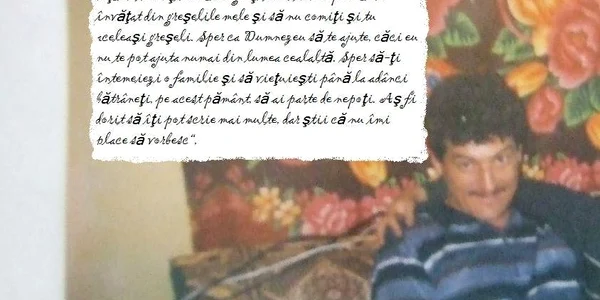 învățat din greșelile mele și să nu comiți și tu
aceleași greșeli. Sper ca Dumnezeu să te ajute, căci eu
nu te pot ajuta numai din lumea cealaltă. Sper să-ți
întemeiezi o familie și să viețuiești până la adânci
bătrâneți, pe acest pământ, să ai parte de nepoți. Aș fi
dorit să îți pot scrie mai multe, dar știi că nu îmi
place să vorbesc“.